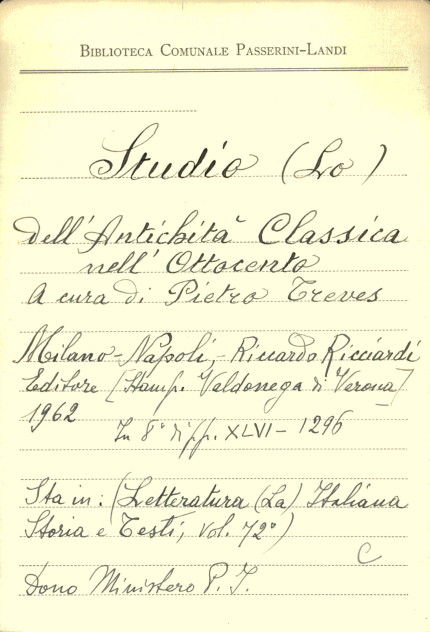 BIBLIOTECA COMUNALE PASSERINI-LANDI
Studio (Lo)
dell'Antichità Classica
nell'Ottocento
A cura di Pietro Treves
Milano-Napoli, - Riccardo Ricciardi
Editore [Stamp. Valdonega di Verona]
1962
In 8° di pp. XLVI - 1296
Sta in: (Letteratura (La) Italiana
Storia e Testi, vol. 72°)
C
Dono Ministero P. I.